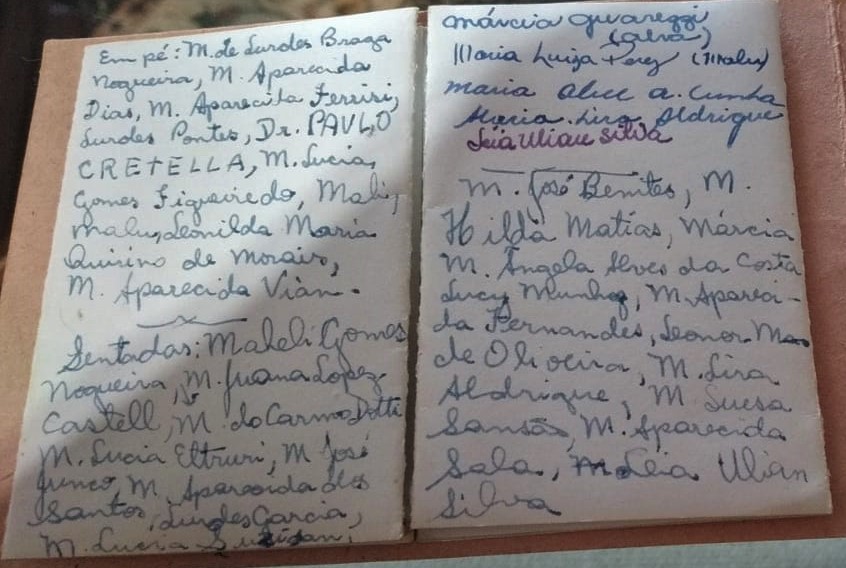 Em pé: M. de Lurdes Braga
Nogueira, M. Aparecida
Dias, M. Aparecida Ferriri,
Lurdes Pontes, Dr. PAULO
CRETELLA, M. Lucia,
Gomes Figueiredo, Mali,
Malu, Leonilda Maria
Quirino de Morais,
M. Aparecida Vian.
Sentadas: Maheli Gomes
Nogueira, M. Juana Lopez
Castell, M. do Carmo Dotti
M. Lucia Ettruri, M José
Junco, M. Aparecida dos
Santos, Lurdes Garcia,
M. Lucia
Márcia
Maria Luiza Perez (Malu)
Maria Alice A. Cunha
Maria Lira Aldrigue
Leia Ulian Silva
M. José Benites, M.
Hilda Matias, Márcia
M. Ângela Alves da Costa
Lucy Munhoz, M. Apareci-
da Fernandes, Leonor Ma
de Oliveira, M. Lira
Aldrigue, M
Sansão, M. Aparecida
Sala, M Leia Ulian
Silva